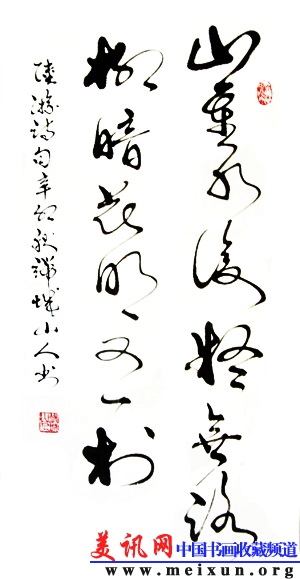 山重水復疑無路
柳暗花明又一村
陸游詩句辛卯秋城小人书
美讯网 中国书画收藏频道
www.meixun.org